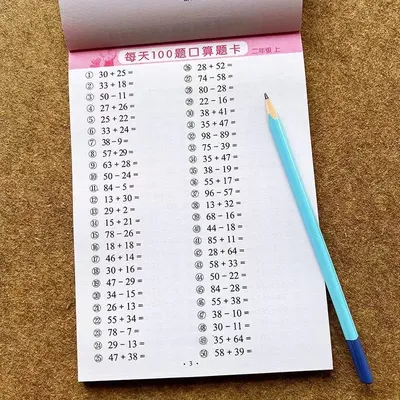 每天100题口算题卡 二年级 上
① 30+25=
② 33+18=
③ 50-11=
④ 27+26=
⑤ 25+22=
⑥ 33+24=
⑦ 38-9=
⑧ 57+29=
⑨ 63+28=
⑩ 50-24=
⑪ 84-5=
⑫ 13+30=
⑬ 29+2=
⑭ 15+21=
⑮ 78-26=
⑯ 18+18=
⑰ 46+14=
⑱ 30+16=
⑲ 47-29=
⑳ 34-15=
㉑ 26+13=
㉒ 55+34=
㉓ 78-7=
㉔ 29-13=
㉕ 47+38=
㉖ 28+52=
㉗ 74-58=
㉘ 80-28=
㉙ 22-16=
㉚ 38+41=
㉛ 35+47=
㉜ 98-89=
㉝ 75-39=
㉞ 35+47=
㉟ 38-19=
㊱ 55+17=
㊲ 96-57=
㊳ 13+32=
㊴ 68-16=
㊵ 44-18=
㊶ 85+11=
㊷ 28+64=
㊸ 58+33=
㊹ 50-22=
㊺ 84-28=
㊻ 55+38=
㊼ 38-10=
㊽ 30-11=
㊾ 35+14=
㊿ 58+39=
·3·